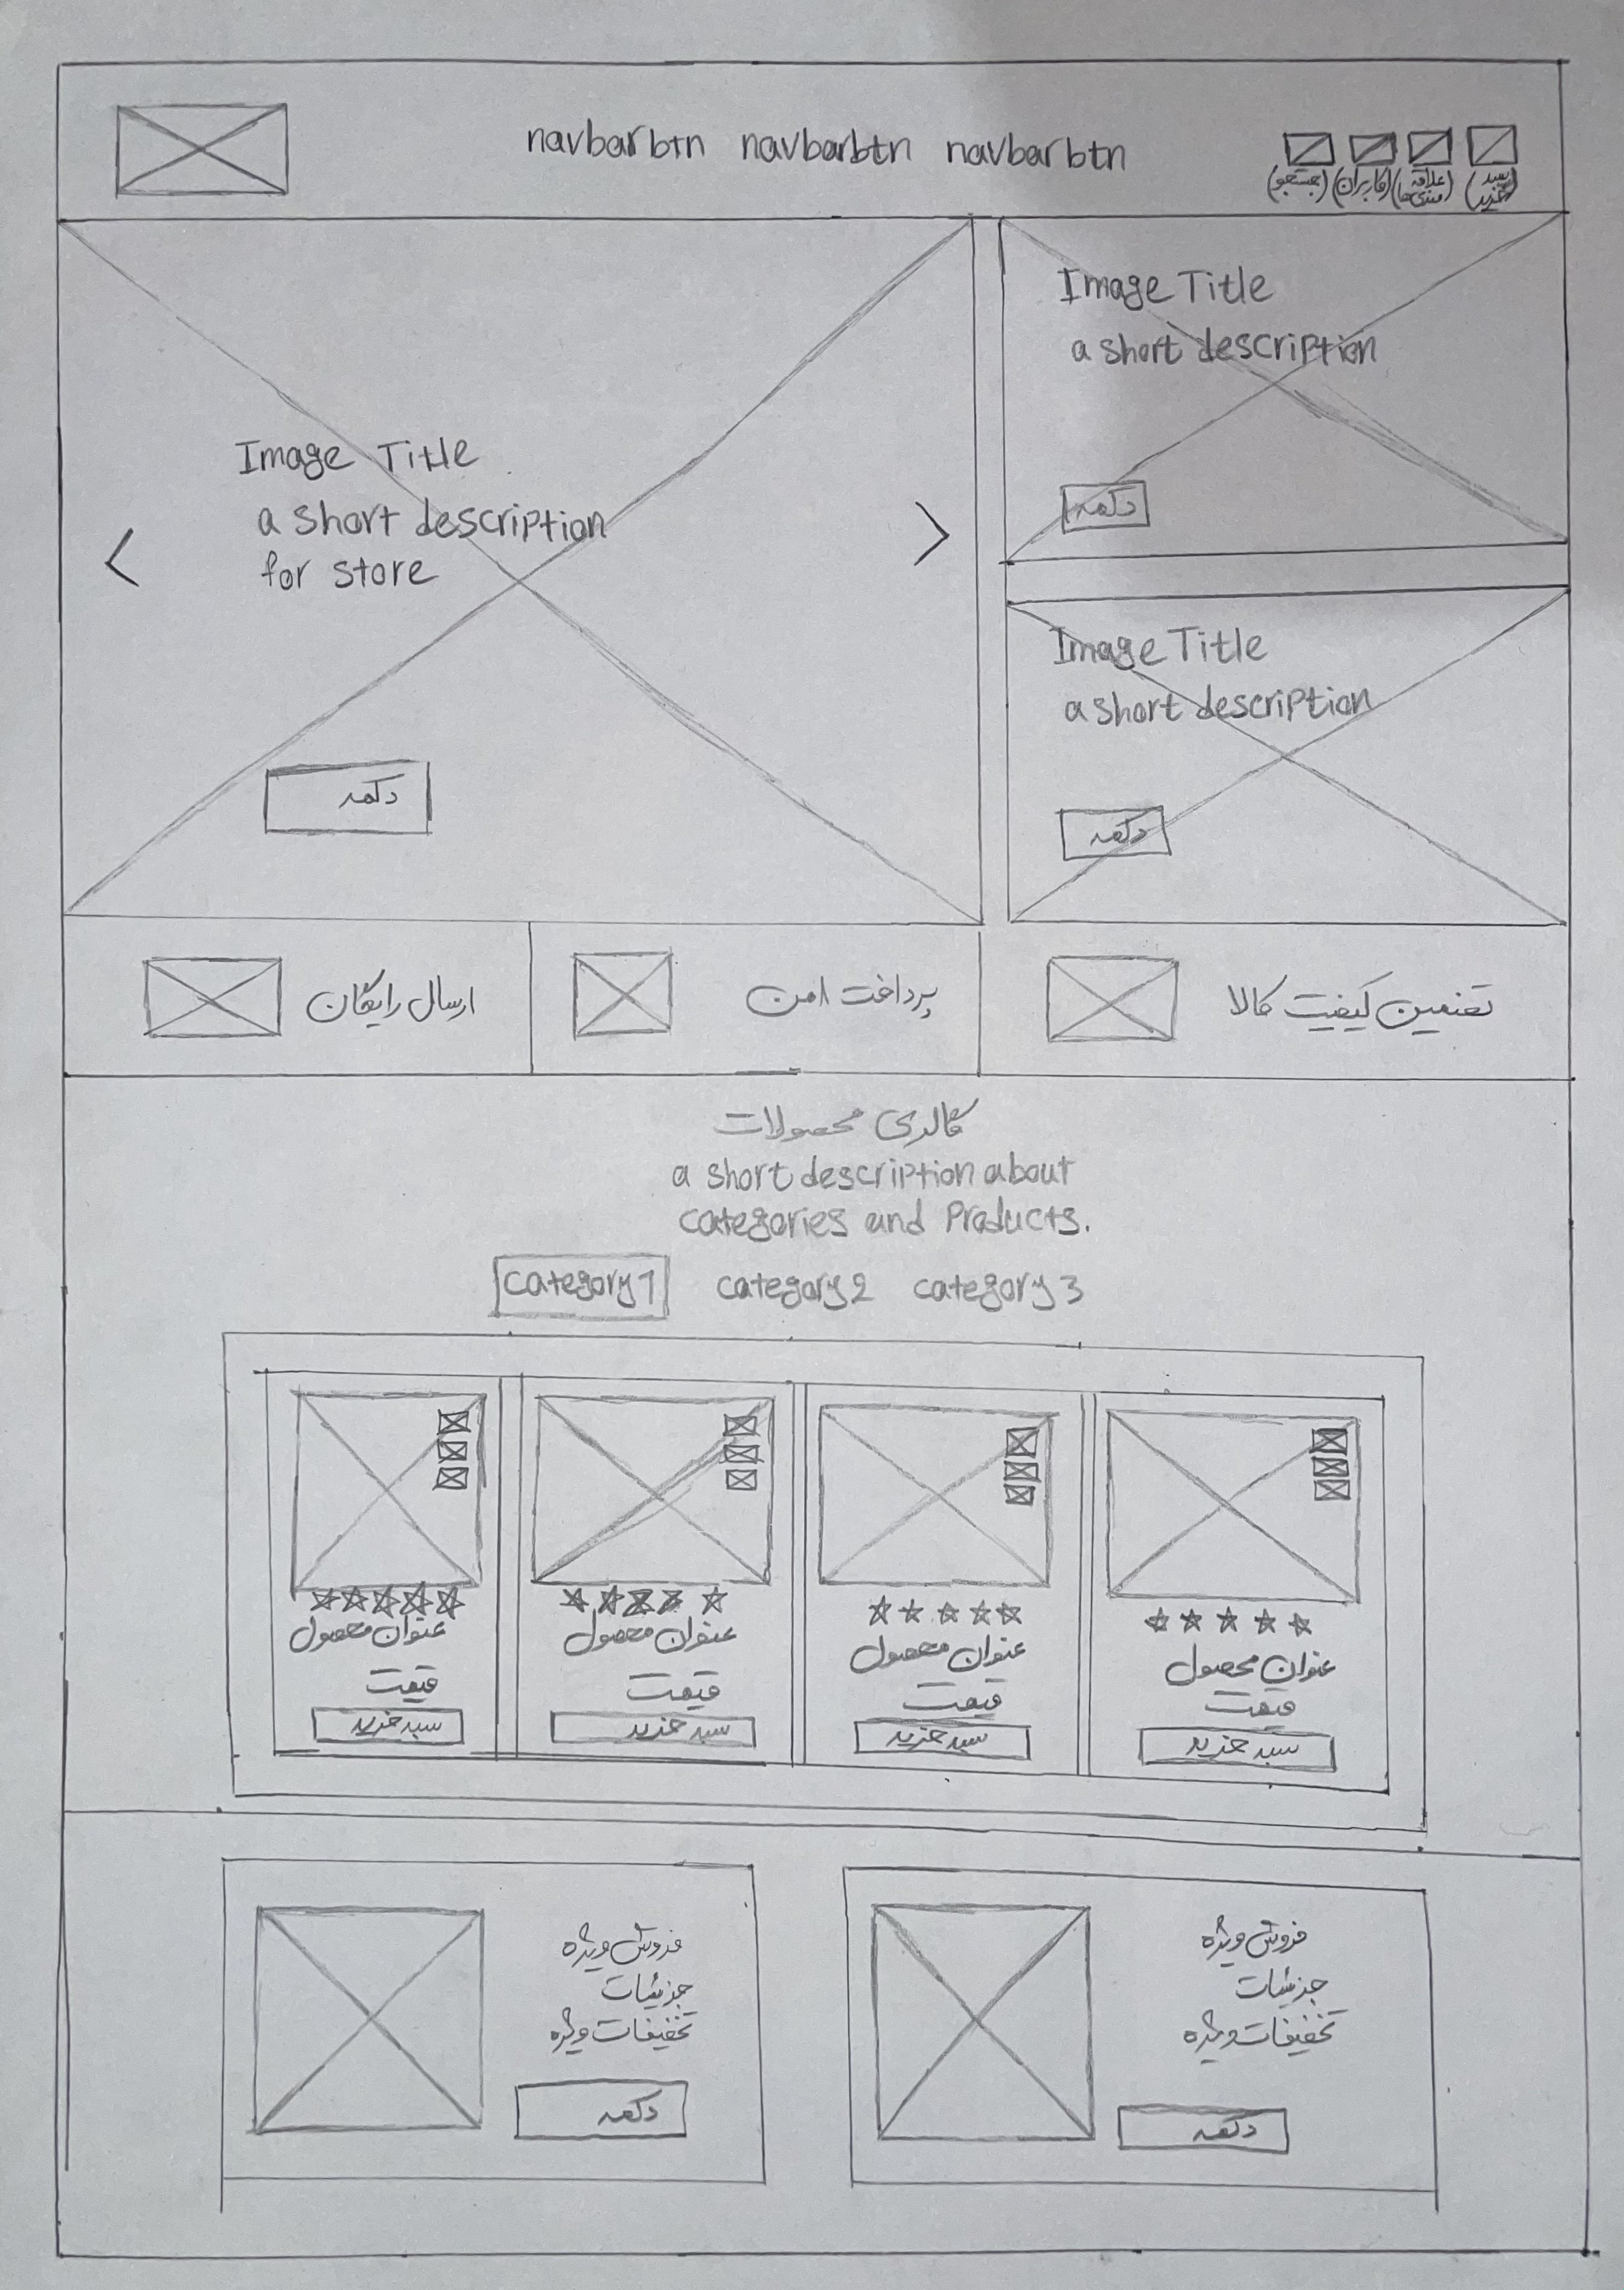 navbarbtn navbarbtn navbarbtn
(جستجو) (کاربران) (علاقه مندی‌ها) (سبد خرید)
Image Title
a short description
for store
دکمه
Image Title
a short description
دکمه
Image Title
a short description
دکمه
ارسال رایگان
پرداخت امن
تضمین کیفیت کالا
گالری محصولات
a short description about
categories and Products.
category1 category2 category3
عنوان محصول
قیمت
سبد خرید
عنوان محصول
قیمت
سبد خرید
عنوان محصول
قیمت
سبد خرید
عنوان محصول
قیمت
سبد خرید
فروش ویژه
جزئیات
تخفیفات ویژه
دکمه
فروش ویژه
جزئیات
تخفیفات ویژه
دکمه